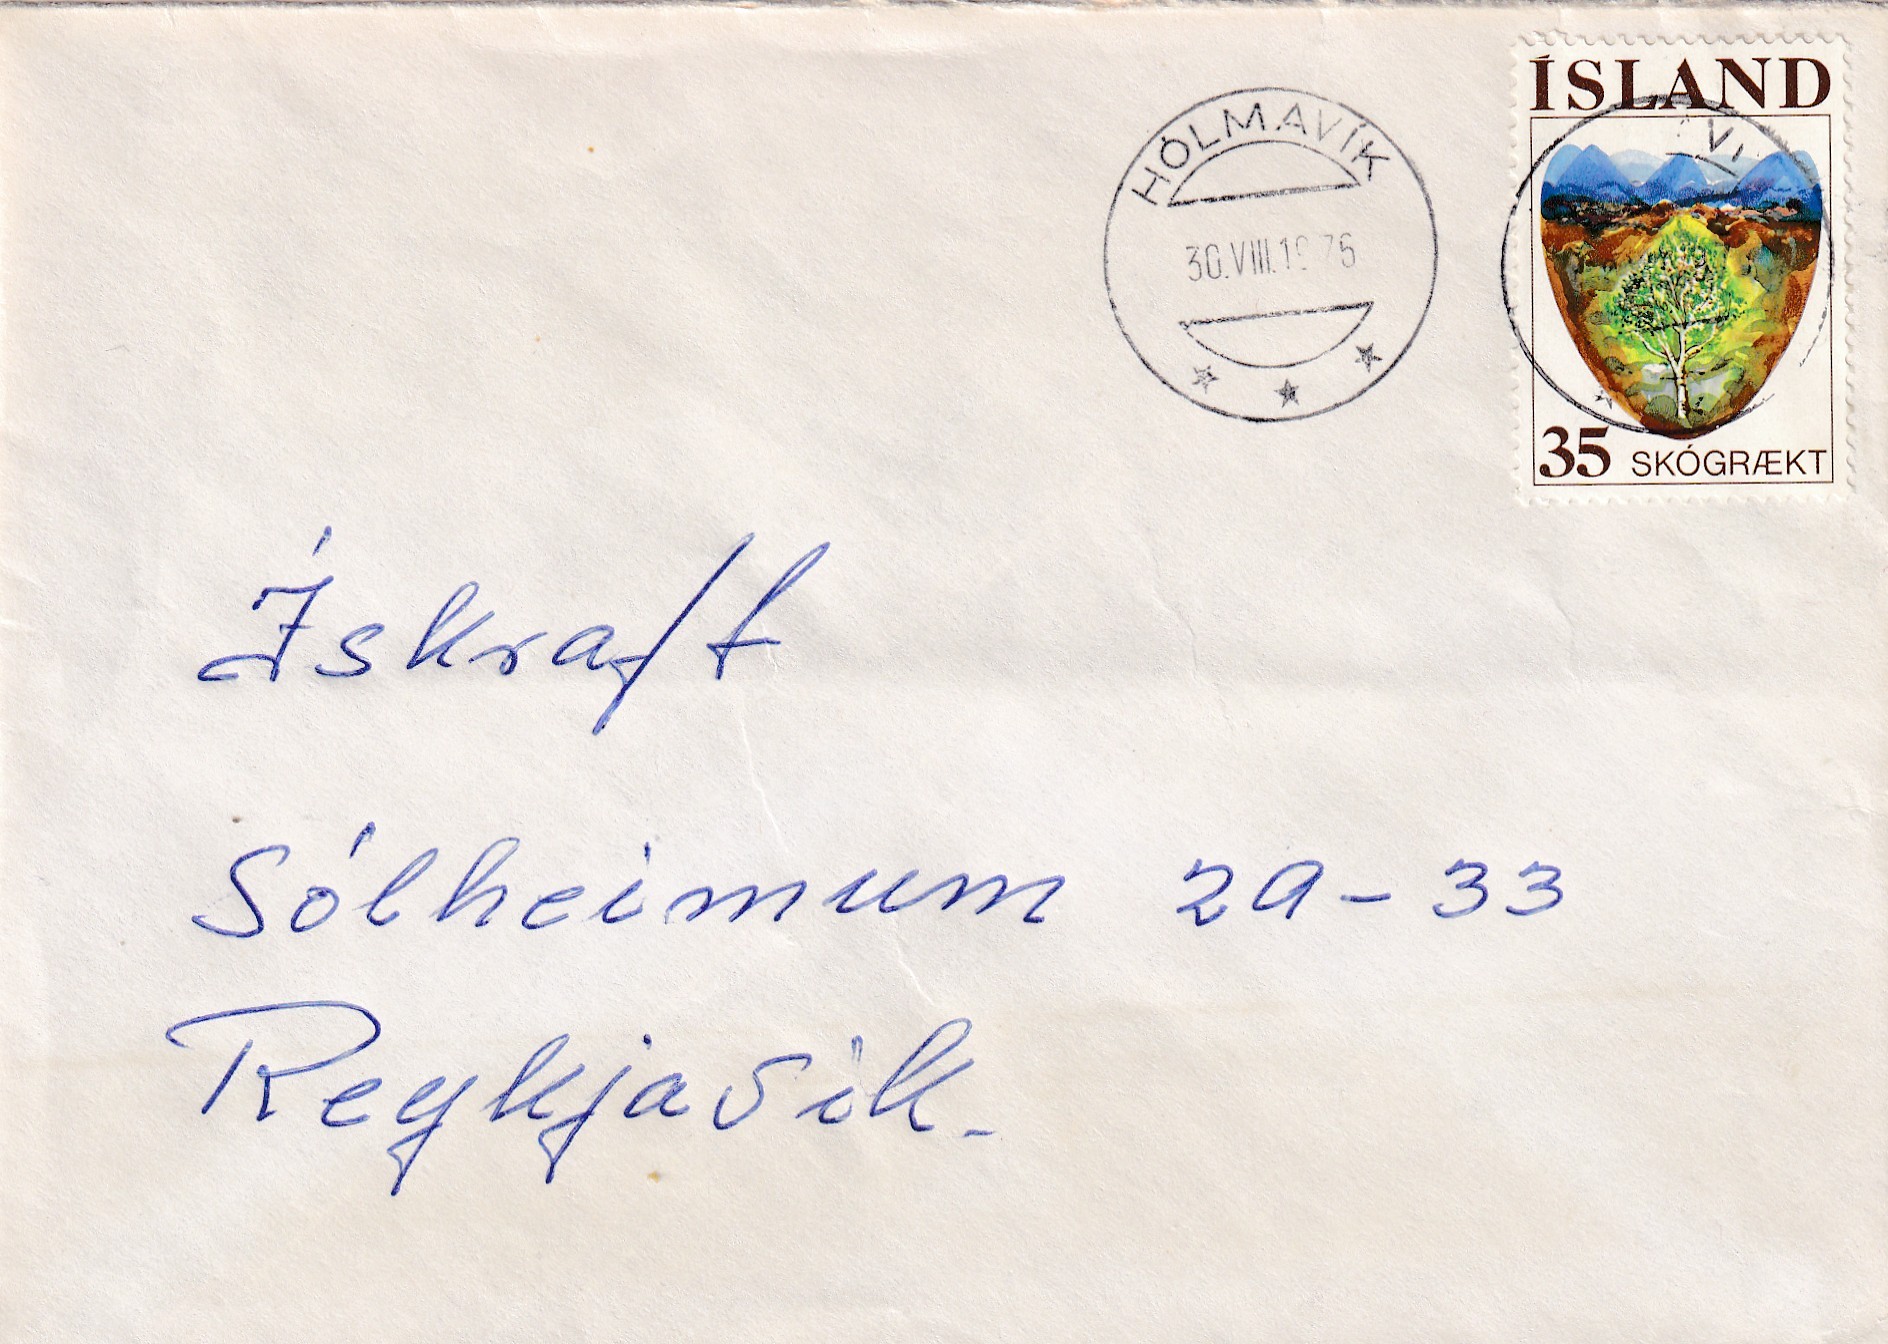 ÍSLAND
HÓLMAVÍK
30.VIII.1976
35 SKÓGRÆKT
Ískraft
Sólheimum 29-33
Reykjavik.